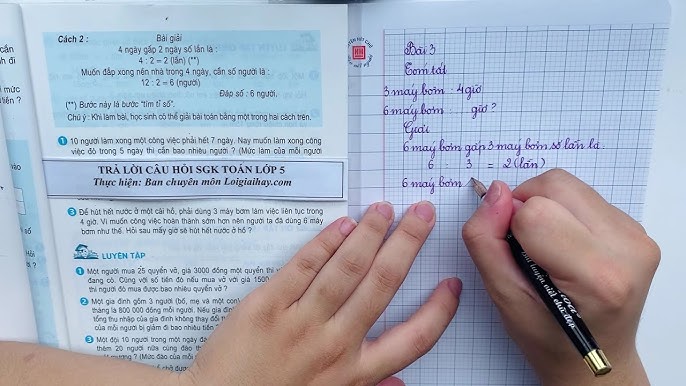 Cách 2 :
Bài giải
4 ngày gấp 2 ngày số lần là :
4 : 2 = 2 (lần) (**)
Muốn đắp xong nền nhà trong 4 ngày, cần số người là :
12 : 2 = 6 (người)
Đáp số : 6 người.
(**) Bước này là bước "tìm tỉ số".
Chú ý : Khi làm bài, học sinh có thể giải bài toán bằng một trong hai cách trên.
1 10 người làm xong một công việc phải hết 7 ngày. Nay muốn làm xong công
việc đó trong 5 ngày thì cần bao nhiêu người ? (Mức làm của mỗi người
TRẢ LỜI CÂU HỎI SGK TOÁN LỚP 5
Thực hiện: Ban chuyên môn Loigiaihay.com
3 Để hút hết nước ở một cái hồ, phải dùng 3 máy bơm làm việc liên tục trong
4 giờ. Vì muốn công việc hoàn thành sớm hơn nên người ta đã dùng 6 máy
bơm như thế. Hỏi sau mấy giờ sẽ hút hết nước ở hồ ?
LUYỆN TẬP
1 Một người mua 25 quyển vở, giá 3000 đồng một quyển thì
đang có. Cùng với số tiền đó nếu mua vở với giá 1500
thì người đó mua được bao nhiêu quyển vở ?
2 Một gia đình gồm 3 người (bố, mẹ và một con)
tháng là 800 000 đồng mỗi người. Nếu gia đình
tổng thu nhập của gia đình không thay đổi thì
của mỗi người bị giảm đi bao nhiêu tiền
3 Một đội 10 người trong một ngày
thêm 20 người nữa cùng đào
mương ? (Mức đào của mỗi
cần
nh đi
mức
tiền ?
Bài 3
Tóm tắt
3 máy bơm : 4 giờ
6 máy bơm : .... giờ ?
Giải
6 máy bơm gấp 3 máy bơm số lần là
6 3 = 2 (lần)
6 máy bơm